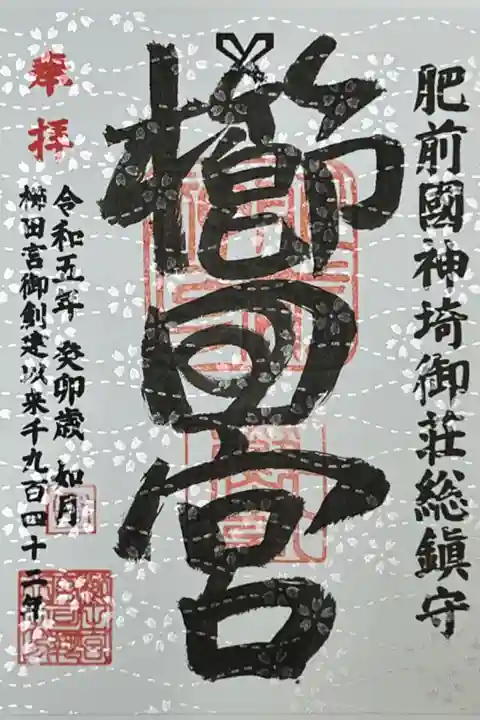 肥前國神埼御荘総鎮守
櫛田宮
奉拝
令和五年 癸卯歳 如月
櫛田宮御創建以来千九百四十二年